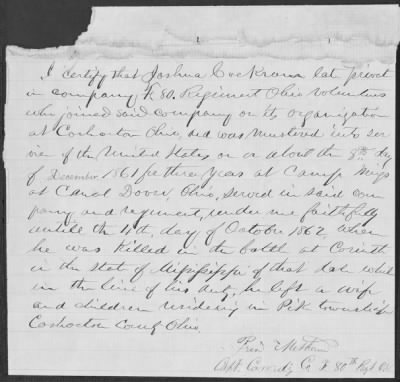 I certify that Joshua Cockrana late privat
in company F. 80. Regiment Ohio Voluntius
who joined said company on its organization
at Coshocton Ohio, and was mustered into ser-
vice of the United States on or about the 8th day
of December 1861 for three years at Camp Meigs
at Canal Dover Ohio, served in said com-
pany and regiment, under me faithfully
untill the 4th, day of October 1862, when
he was killed in the battle at Corinth
in the stat of Mississippi of that dat whil
in the line of his duty, he left a wife
and children residing in Pik township
Coshocton County Ohio.
Capt. Co F 80th Regt